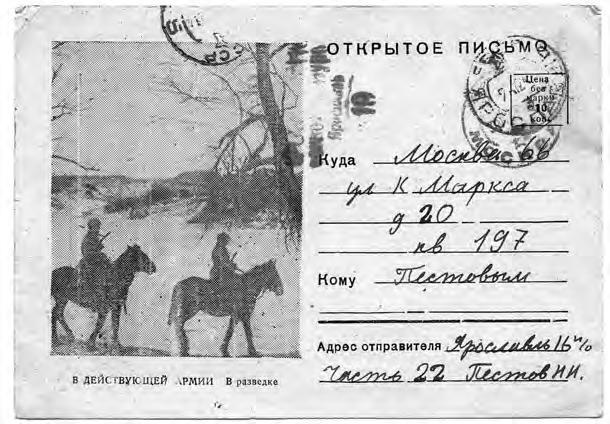 ОТКРЫТОЕ ПИСЬМО
Цена
без
марки
10
коп.
19
Куда Москва 66
ул К Маркса
д 20
кв 197
Кому Пестовым
Адрес отправителя Ярославль 16 п/о
Часть 22 Пестов Н.И.
В ДЕЙСТВУЮЩЕЙ АРМИИ В разведке